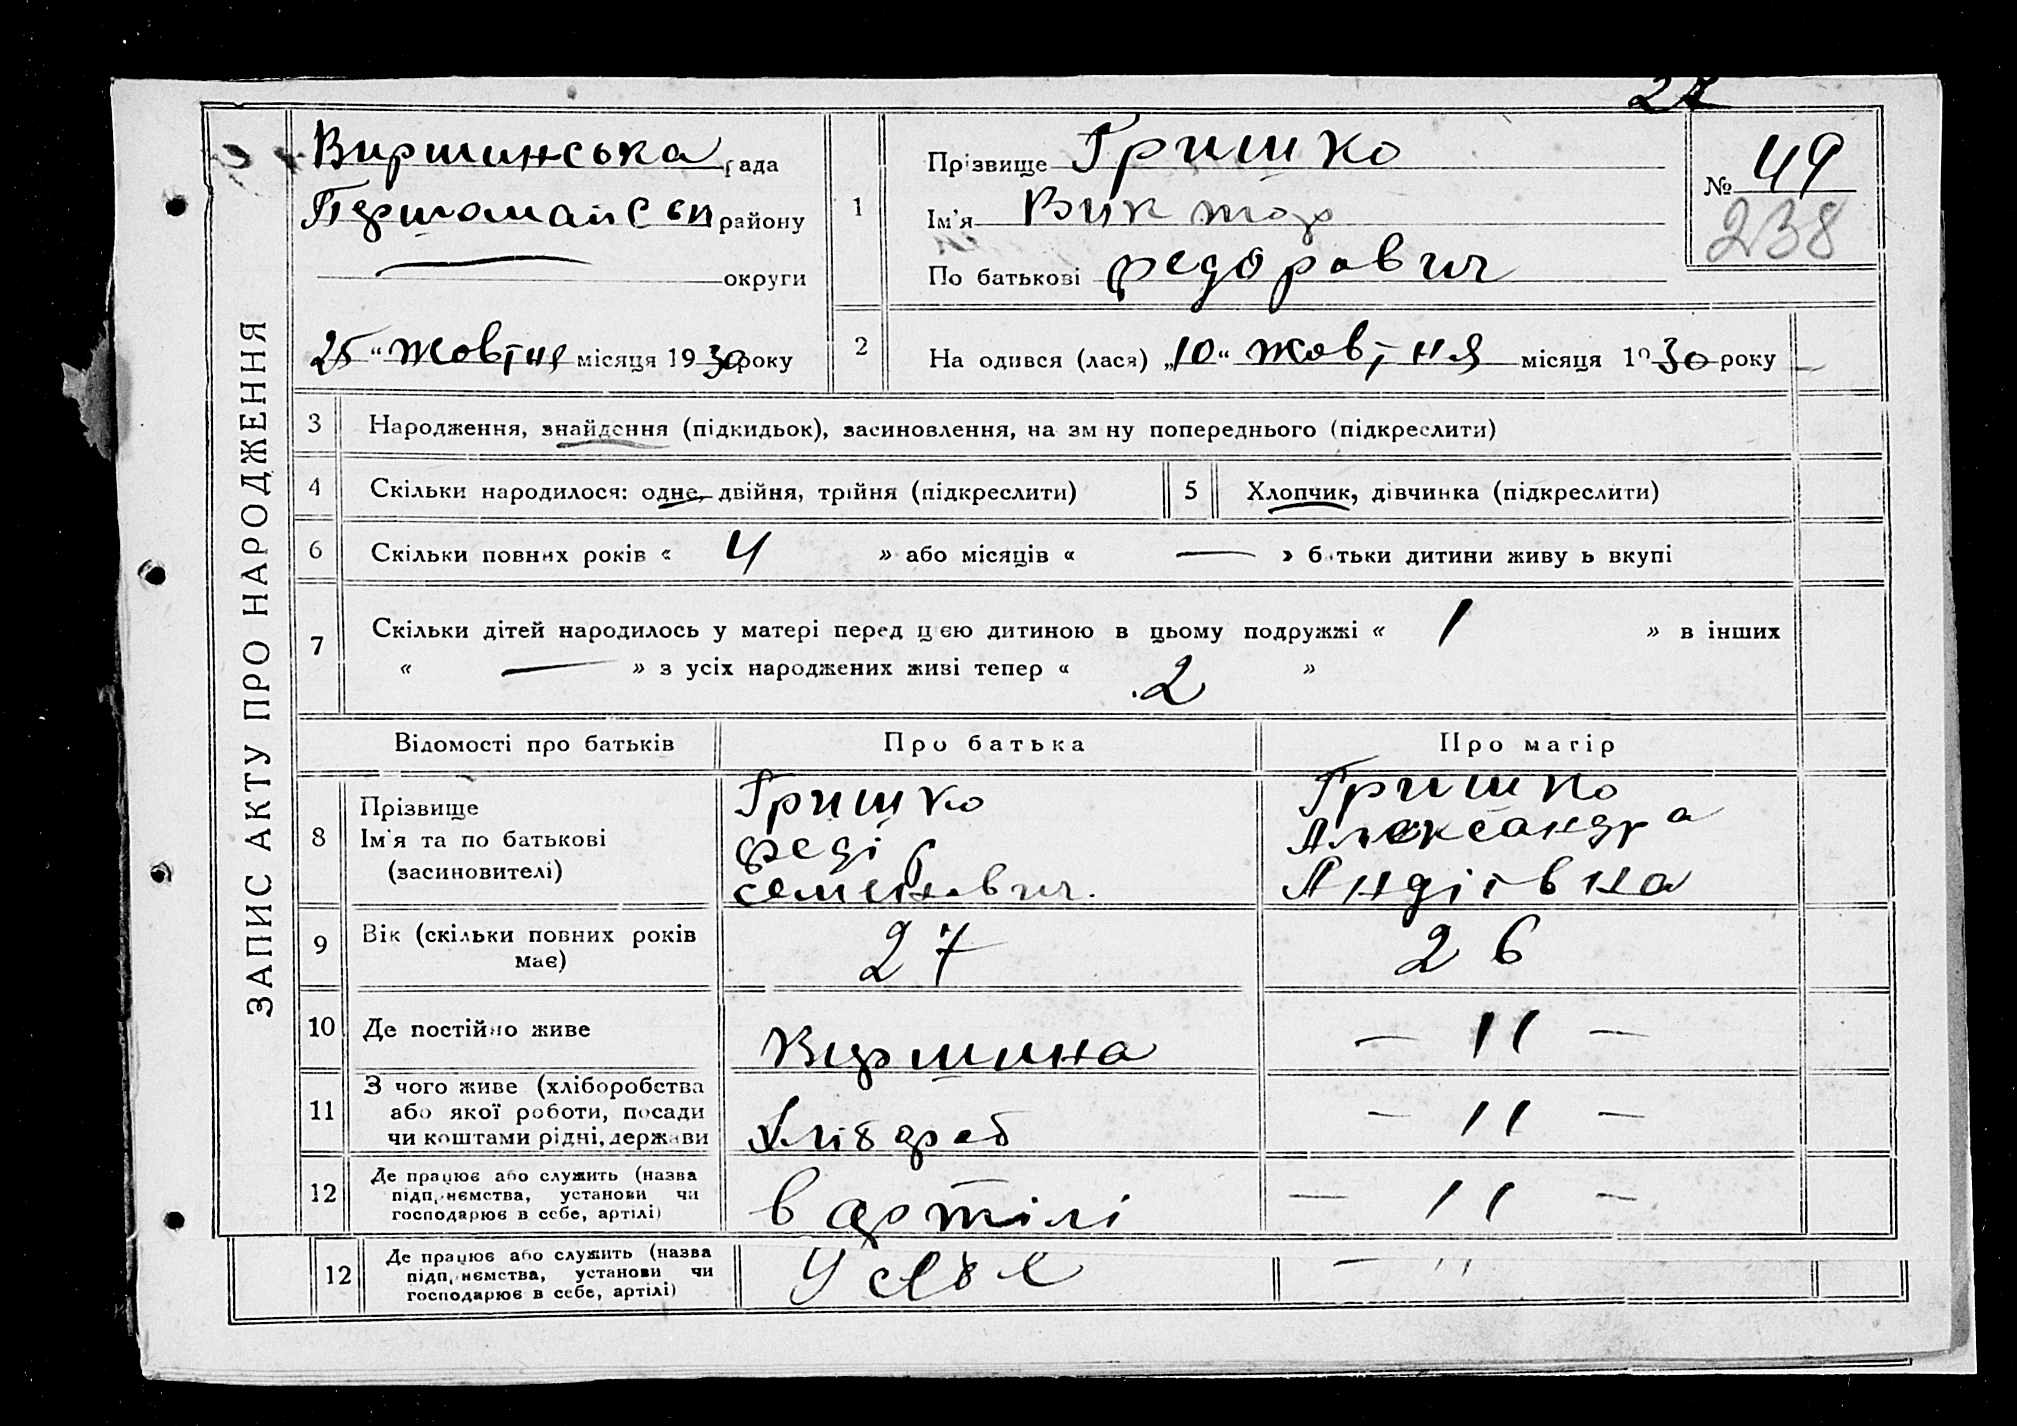 24
ЗАПИС АКТУ ПРО НАРОДЖЕННЯ
Виршинська рада
Першомайськ району
округи
25 " жовтня місяця 1930 року
1
Прізвище Гришко
Ім'я Виктор
По батькові Федорович
№ 49
238
2
На одився (лася) „10" жовтня місяця 1930 року
3 Народження, знайдення (підкидьок), засиновлення, на зм ну попереднього (підкреслити)
4 Скільки народилося: одне, двійня, трійня (підкреслити) 5 Хлопчик, дівчинка (підкреслити)
6 Скільки повних років « 4 » або місяців « — » б тьки дитини живу ь вкупі
7 Скільки дітей народилось у матері перед цією дитиною в цьому подружжі « 1 » в інших
« — » з усіх народжених живі тепер « 2 »
Відомості про батьків Про батька Про матір
8 Прізвище
Ім'я та по батькові
(засиновителі)
Гришко
Федір
Семенович.
Гришко
Александра
Андіївна
9 Вік (скільки повних років
має)
27 26
10 Де постійно живе Виршина — 11 —
11 З чого живе (хліборобства
або якої роботи, посади
чи коштами рідні, держави
Хлібороб — 11 —
12 Де працює або служить (назва
підп, немства, установи чи
господарює в себе, артілі)
в артілі — 11 —
12 Де працює або служить (назва
підп, немства, установи чи
господарює в себе, артілі)
У себе — 11